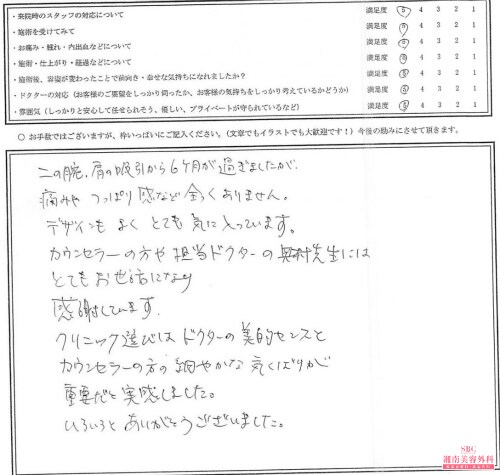 ・来院時のスタッフの対応について 満足度 5 4 3 2 1
・施術を受けてみて 満足度 5 4 3 2 1
・お痛み・腫れ・内出血などについて 満足度 5 4 3 2 1
・施術・仕上がり・経過などについて 満足度 5 4 3 2 1
・施術後、容姿が変わったことで前向き・幸せな気持ちになれましたか? 満足度 5 4 3 2 1
・ドクターの対応(お客様のご要望をしっかり伺ったか、お客様の気持ちをしっかり考えているかどうか) 満足度 5 4 3 2 1
・雰囲気(しっかりと安心して任せられそう、優しい、プライベートが守られているなど) 満足度 5 4 3 2 1
○ お手数ではございますが、枠いっぱいにご記入ください。(文章でもイラストでも大歓迎です!)今後の励みにさせて頂きます。
二の腕、肩の吸引から6ヶ月が過ぎましたが、
痛みや つっぱり感など全くありません。
デザインも よく とても 気に入っています。
カウンセラーの方や 担当ドクターの 奥村先生には
とてもお世話になり
感謝しています。
クリニック選びは ドクターの美的センスと
カウンセラーの方の細やかな気くばりが
重要だと 実感しました。
いろいろと ありがとうございました。
SBC
湘南美容外科